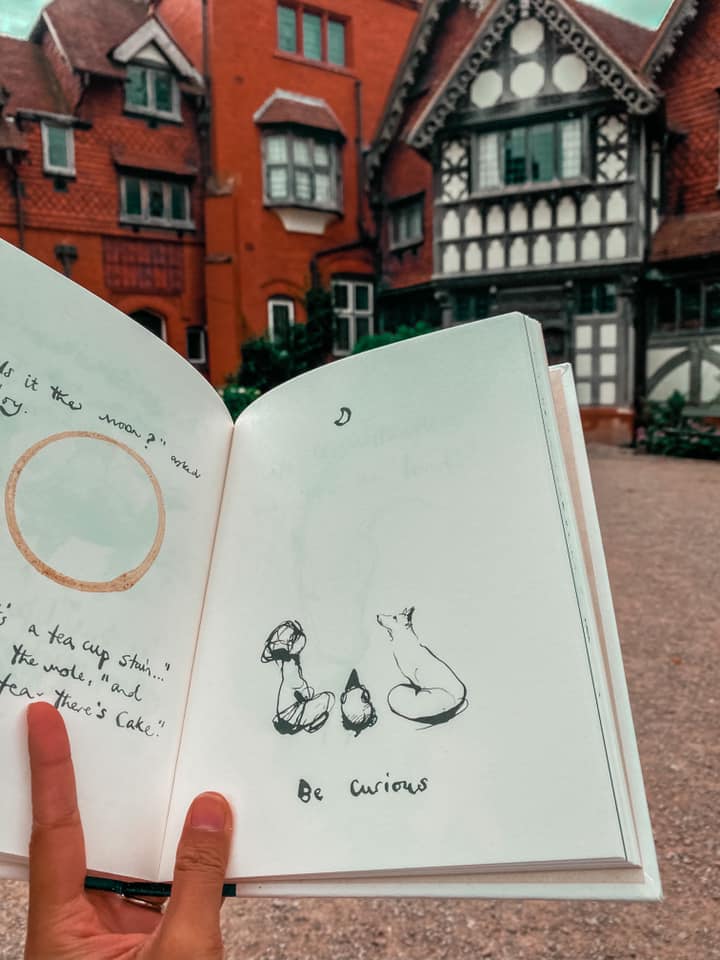 Is it the moon?" asked
oy.
's a tea cup stain..."
the mole, "and
tea there's cake."
Be curious